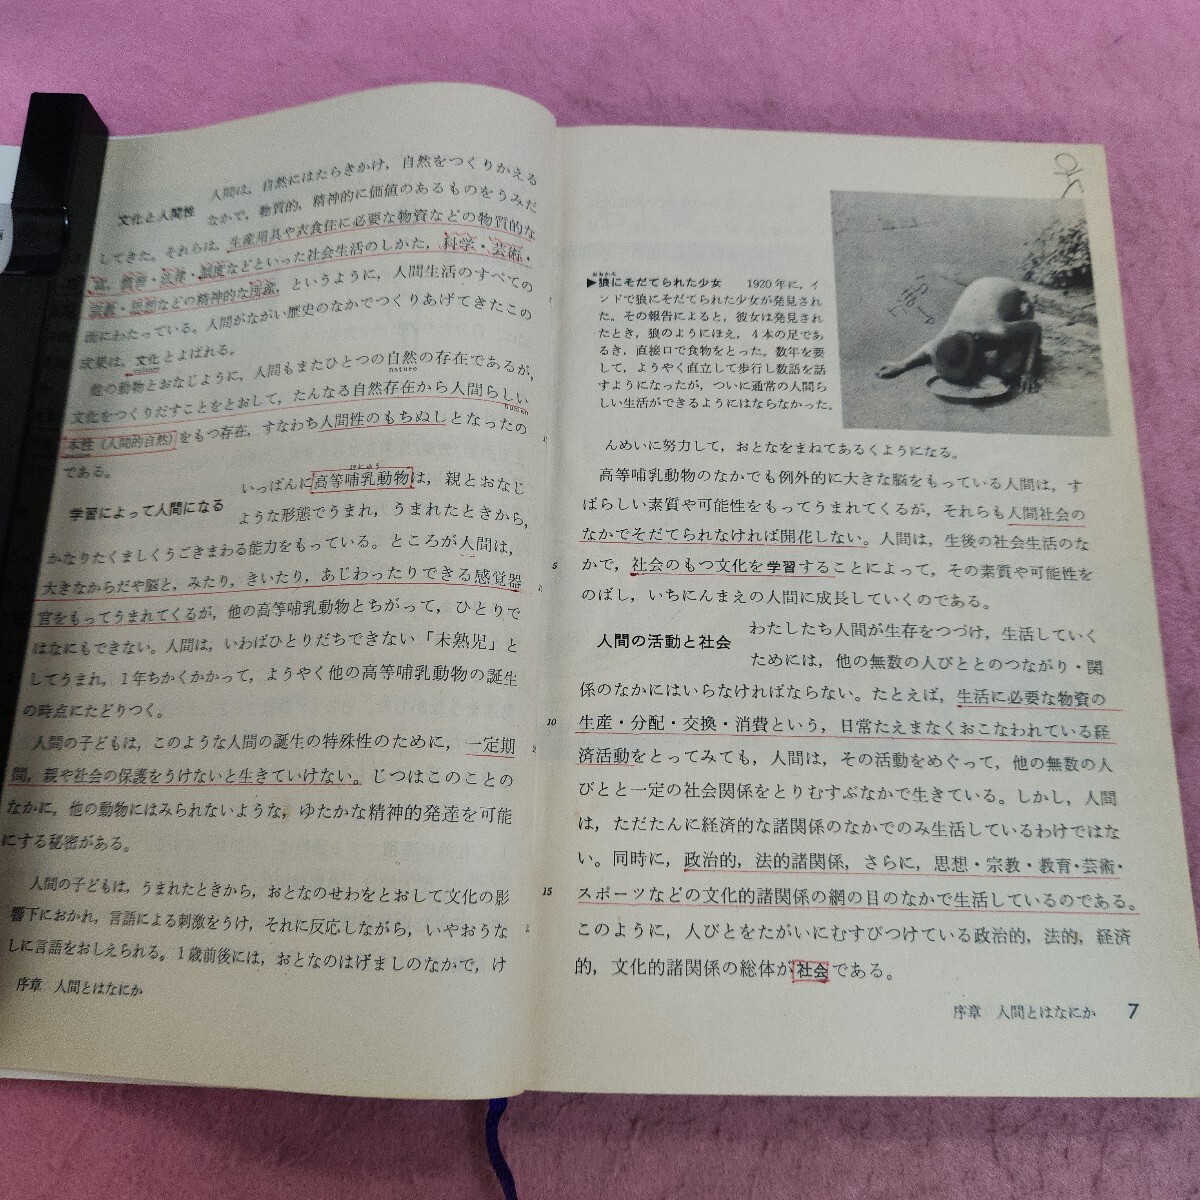 文化と人間性
人間は，自然にはたらきかけ，自然をつくりかえる
なかで，物質的，精神的に価値のあるものをうみだ
してきた。それらは，生産用具や衣食住に必要な物資などの物質的な
富，技術・法律・制度などといった社会生活のしかた，科学・芸術・
宗教・思想などの精神的な所産，というように，人間生活のすべての
面にわたっている。人間がながい歴史のなかでつくりあげてきたこの
成果は，文化とよばれる。
culture
他の動物とおなじように，人間もまたひとつの自然の存在であるが，
nature
文化をつくりだすことをとおして，たんなる自然存在から人間らしい
human
本性（人間的自然）をもつ存在，すなわち人間性のもちぬしとなったの
である。
学習によって人間になる
ほにゅう
いっぱんに高等哺乳動物は，親とおなじ
ような形態でうまれ，うまれたときから，
かなりたくましくうごきまわる能力をもっている。ところが人間は，
大きなからだや脳と，みたり，きいたり，あじわったりできる感覚器
官をもってうまれてくるが，他の高等哺乳動物とちがって，ひとりで
はなにもできない。人間は，いわばひとりだちできない「未熟児」と
してうまれ，1年ちかくかかって，ようやく他の高等哺乳動物の誕生
の時点にたどりつく。
人間の子どもは，このような人間の誕生の特殊性のために，一定期
間，親や社会の保護をうけないと生きていけない。じつはこのことの
なかに，他の動物にはみられないような，ゆたかな精神的発達を可能
にする秘密がある。
人間の子どもは，うまれたときから，おとなのせわをとおして文化の影
響下におかれ，言語による刺激をうけ，それに反応しながら，いやおうな
しに言語をおしえられる。1歳前後には，おとなのはげましのなかで，け
序章　人間とはなにか
おおかみ
▶狼にそだてられた少女　1920年に，イ
ンドで狼にそだてられた少女が発見され
た。その報告によると，彼女は発見され
たとき，狼のようにほえ，4本の足であ
るき，直接口で食物をとった。数年を要
して，ようやく直立して歩行し数語を話
すようになったが，ついに通常の人間ら
しい生活ができるようにはならなかった。
んめいに努力して，おとなをまねてあるくようになる。
高等哺乳動物のなかでも例外的に大きな脳をもっている人間は，す
ばらしい素質や可能性をもってうまれてくるが，それらも人間社会の
なかでそだてられなければ開花しない。人間は，生後の社会生活のな
5
かで，社会のもつ文化を学習することによって，その素質や可能性を
のばし，いちにんまえの人間に成長していくのである。
人間の活動と社会
わたしたち人間が生存をつづけ，生活していく
ためには，他の無数の人びととのつながり・関
係のなかにはいらなければならない。たとえば，生活に必要な物資の
10
生産・分配・交換・消費という，日常たえまなくおこなわれている経
済活動をとってみても，人間は，その活動をめぐって，他の無数の人
びとと一定の社会関係をとりむすぶなかで生きている。しかし，人間
は，ただたんに経済的な諸関係のなかでのみ生活しているわけではな
い。同時に，政治的，法的諸関係，さらに，思想・宗教・教育・芸術・
15
スポーツなどの文化的諸関係の網の目のなかで生活しているのである。
このように，人びとをたがいにむすびつけている政治的，法的，経済
的，文化的諸関係の総体が社会である。
序章　人間とはなにか　7